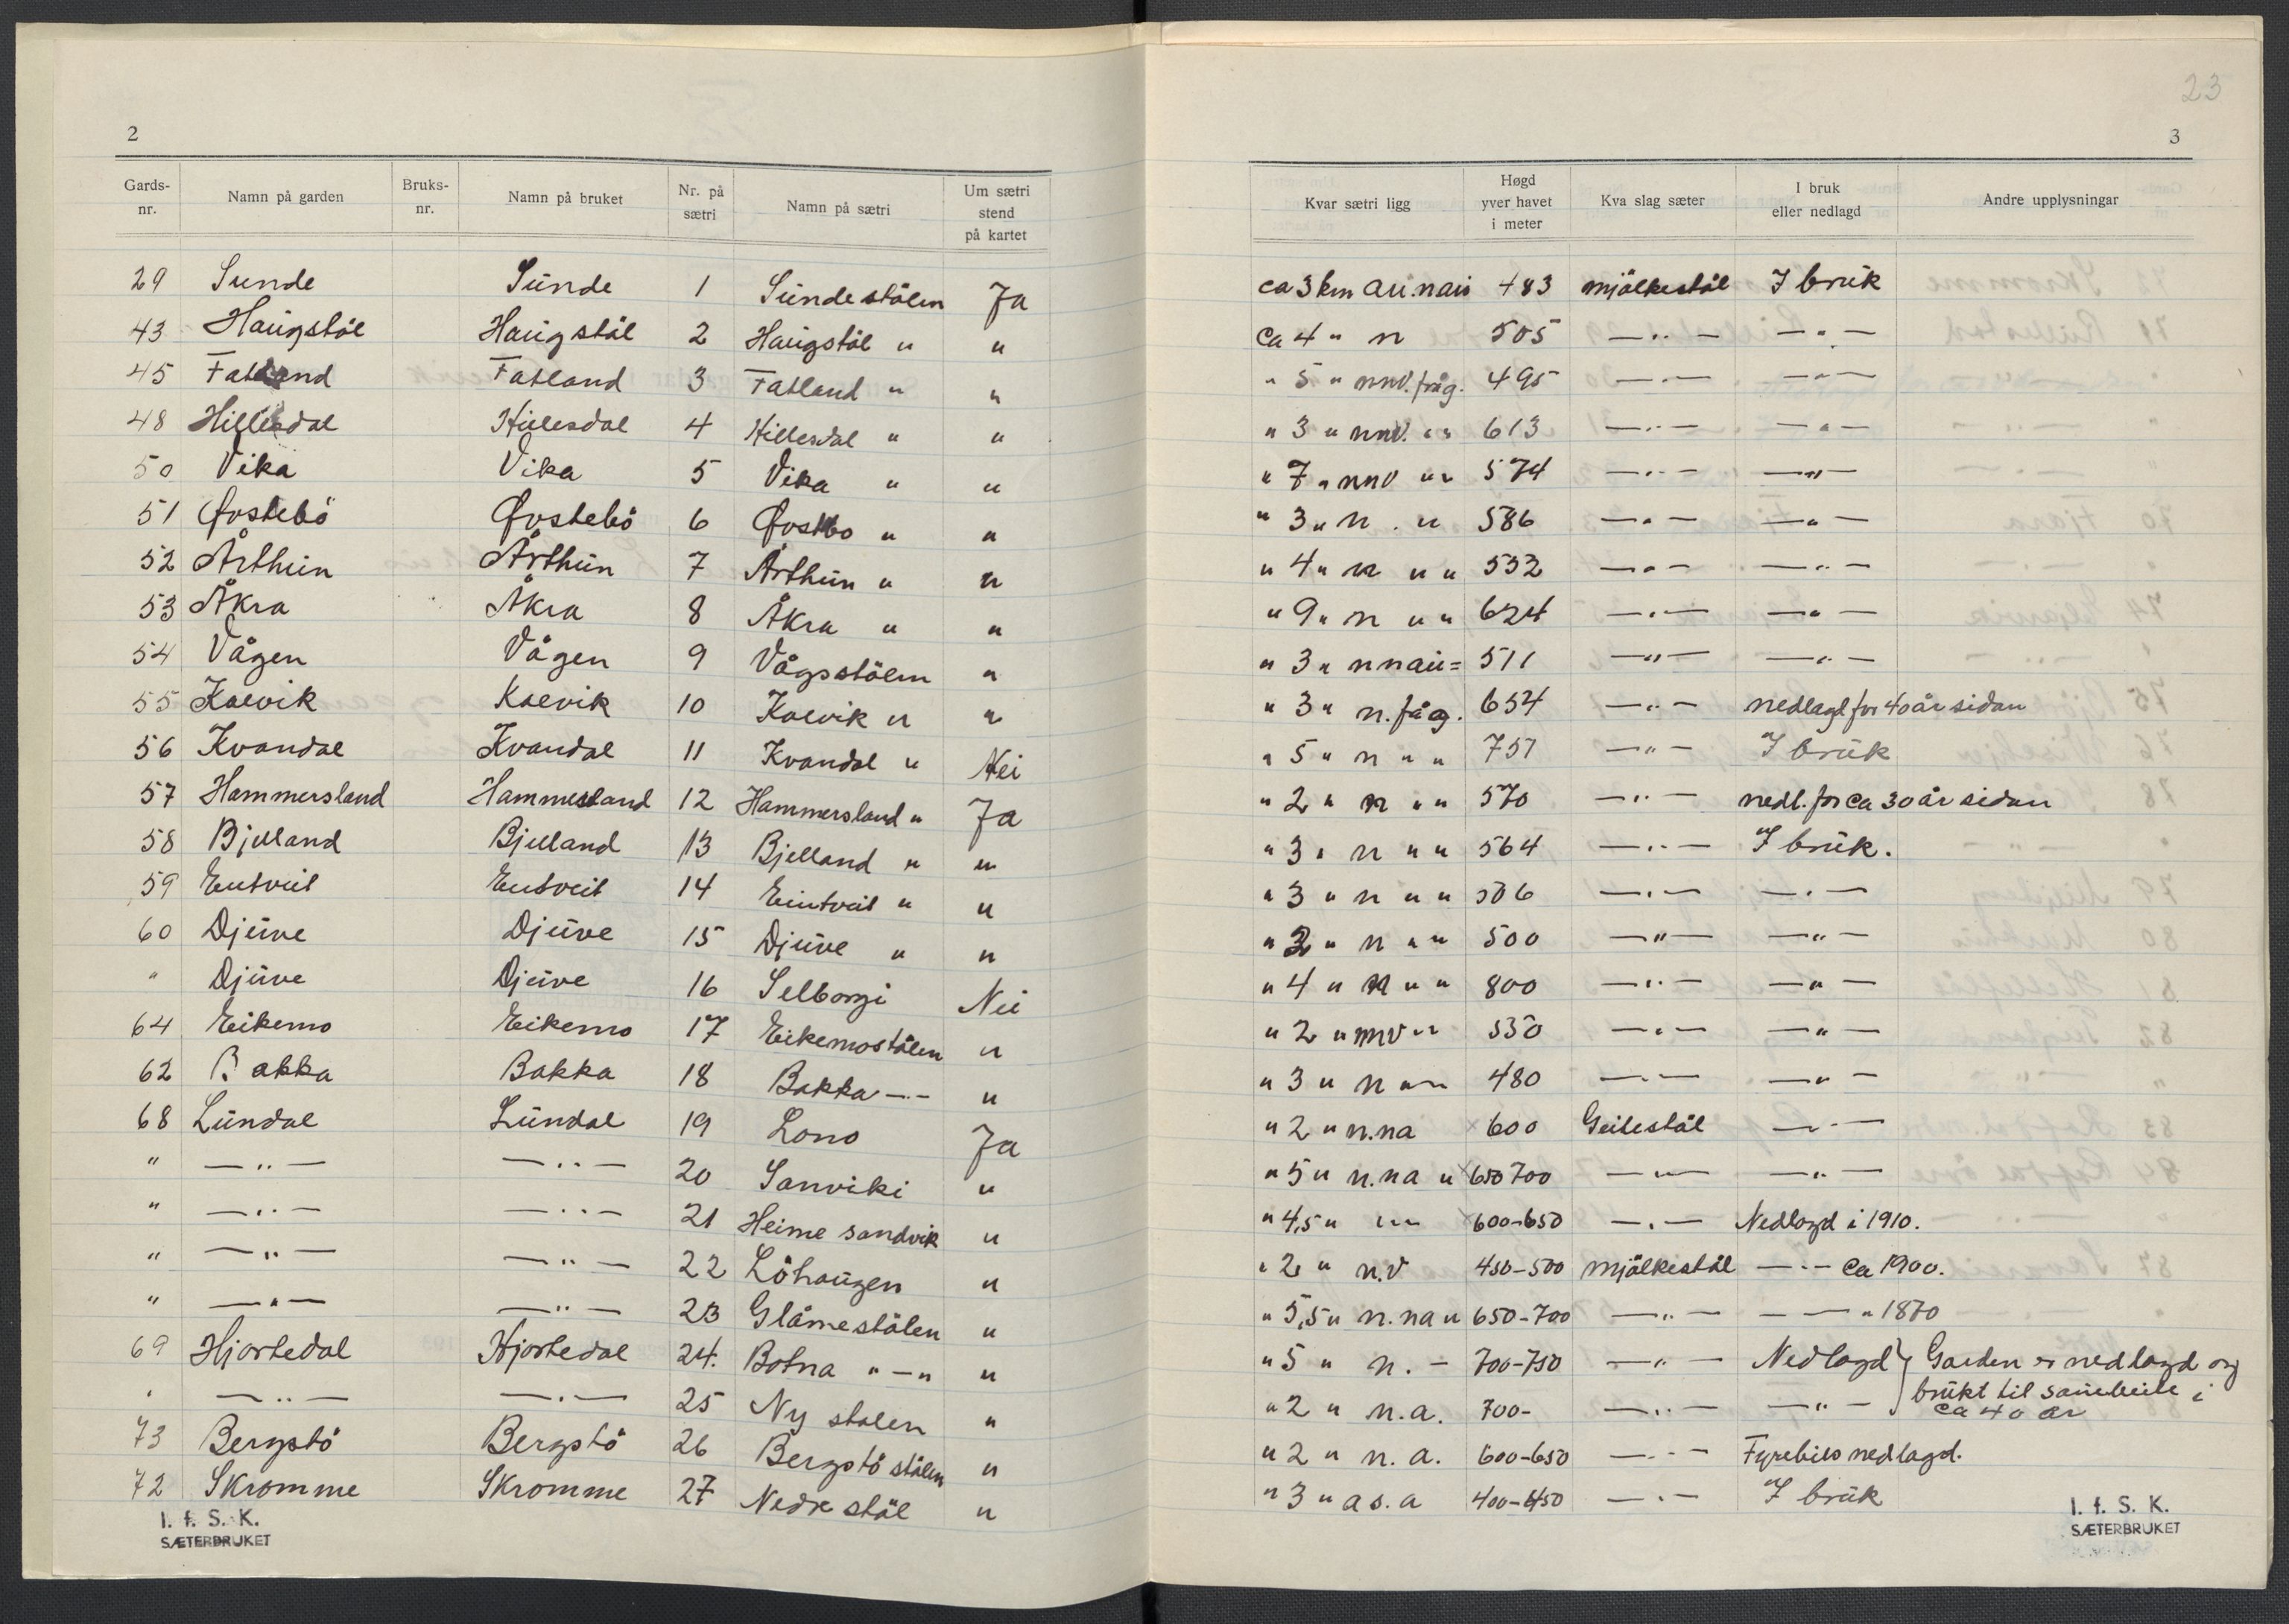 23
2
3
Gards-nr. Namn på garden Bruks-nr. Namn på bruket Nr. på sætri Namn på sætri Um sætri stend på kartet Kvar sætri ligg Høgd yver havet i meter Kva slag sæter I bruk eller nedlagd Andre upplysningar
29 Sunde Sunde 1 Sundestölen Ja ca 3 km au.nau 483 mjölkestöl I bruk
43 Haugstöl Haugstöl 2 Haugstöl " " Ca 4 " n 505 —"— —"—
45 Fatland Fatland 3 Fatland " " " 5 " nnv. frå g. 495 —"— —"—
48 Hillesdal Hillesdal 4 Hillesdal " " " 3 " nnv. " " 613 —"— —"—
50 Vika Vika 5 Vika " " " 7 " nnv " " 574 —"— —"—
51 Øvstebö Øvstebö 6 Øvstbo " " " 3 " n . " 586 —"— —"—
52 Årthun Årthun 7 Årthun " " " 4 " n " " 532 —"— —"—
53 Åkra Åkra 8 Åkra " " " 9 " n " " 624 —"— —"—
54 Vågen Vågen 9 Vågsstölen " " 3 " nnau = 511 —"— —"—
55 Kalvik Kalvik 10 Kalvik " " " 3 " n. få g. 654 —"— nedlagd for 40 år sidan
56 Kvandal Kvandal 11 Kvandal " Nei " 5 " n " " 757 —"— I bruk
57 Hammersland Hammersland 12 Hammersland " Ja " 2 " n " " 570 —"— nedl. for ca 30 år sidan
58 Bjelland Bjelland 13 Bjelland " " " 3 " n " " 564 —"— I bruk.
59 Eintveit Eintveit 14 Eintveit " " " 3 " n " " 506 —"— —"—
60 Djuve Djuve 15 Djuve " " " 2 " n " " 500 —"— —"—
" Djuve Djuve 16 Selborgi Nei " 4 " n " " 800 —"— —"—
64 Eikemo Eikemo 17 Eikemostölen " " 2 " nnv " " 550 —"— —"—
62 Bakka Bakka 18 Bakka —"— " " 3 " n " " 480 —"— —"—
68 Lundal Lundal 19 Lono Ja " 2 " n.na × 600 Geitestöl —"—
" —"— —"— 20 Sanviki " " 5 " n.na " × 650 700 —"— —"—
" —"— —"— 21 Heime sandvik " " 4,5 " " " × 600-650 —"— Nedlagd i 1910.
" —"— —"— 22 Löhaugen " " 2 " n.v 450-500 mjölkestöl —"— ca 1900.
" —"— —"— 23 Glåmestölen " " 5,5 " n.na " 650-700 —"— —"— " 1870
69 Hjortedal Hjortedal 24. Botna " — " " " 5 " n. - 700-750 —"— Nedlagd } Garden er nedlagd og
" —"— —"— 25 Ny stolen " " 2 " n.a. 700- —"— —"— brukt til sauebeite i
ca 40 år
73 Bergstö Bergstö 26 Bergstö stölen " " 2 " n. a. 600-650 —"— Fyrebils nedlagd.
72 Skromme Skromme 27 Nedre stöl " " 3 " a s. a 400-450 —"— I bruk
I. f. S. K.
SÆTERBRUKET
I. f. S. K.
SÆTERBRUKET